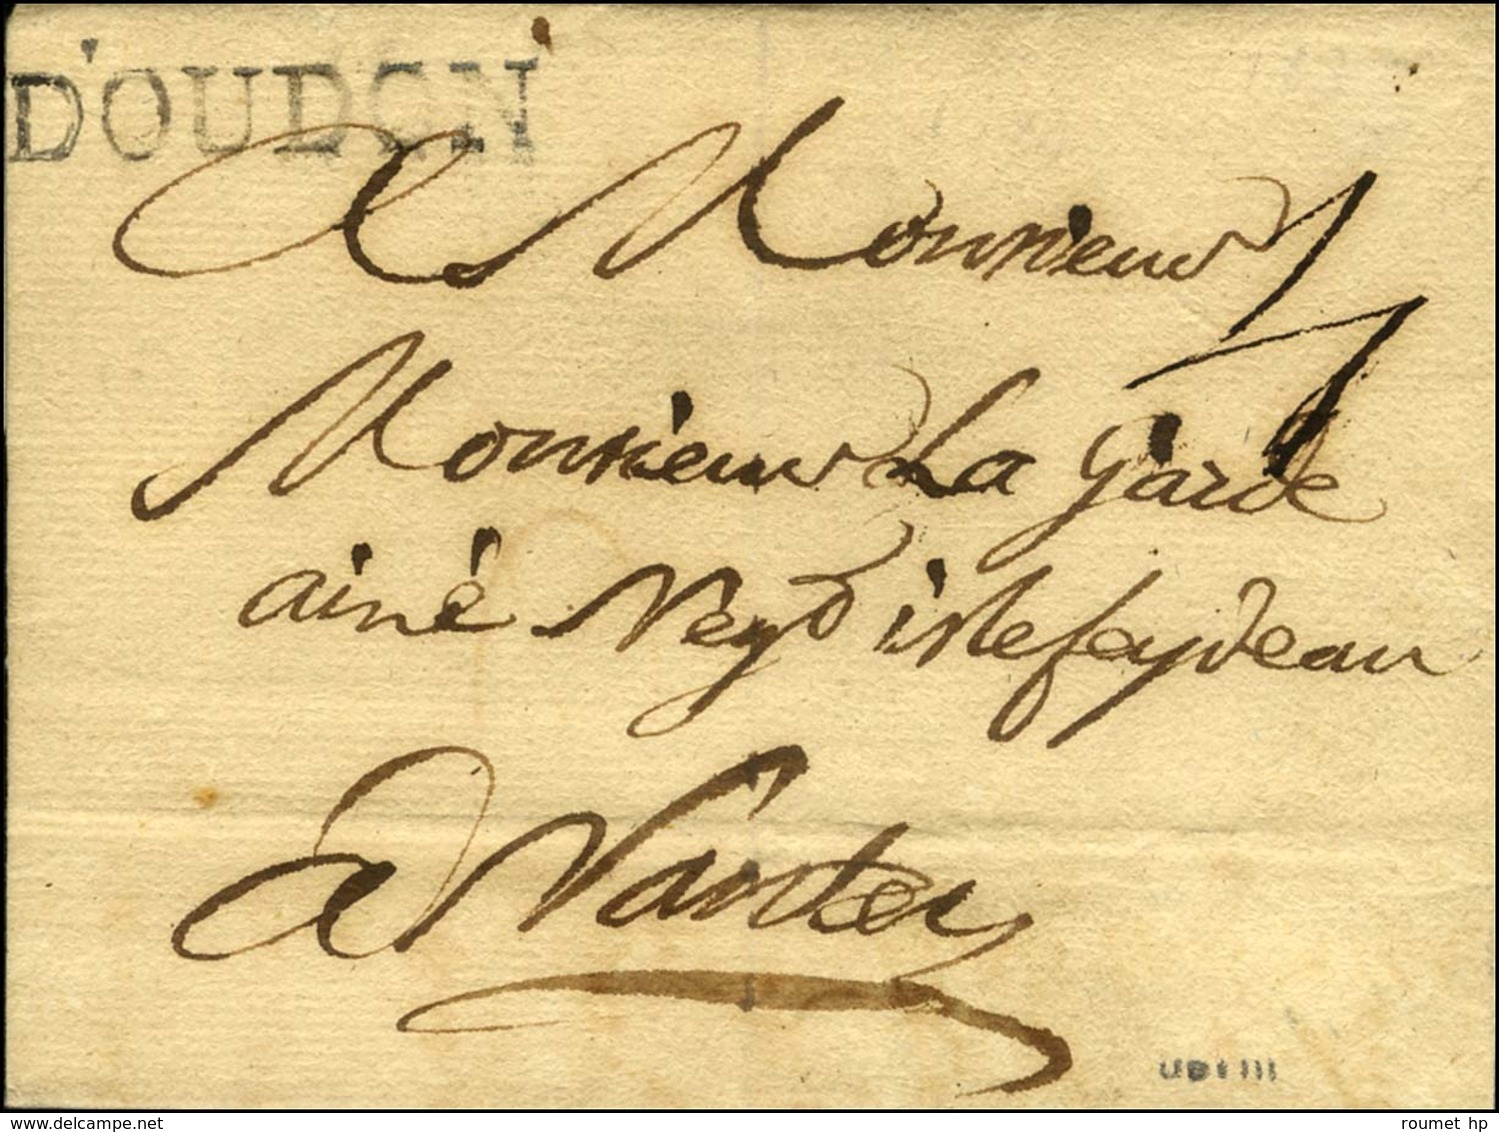 D'OUDON
A Monsieur
Monsieur La Garde
ainé Negt isle feydeau
A Nantes
delcampe.net
roumet hp